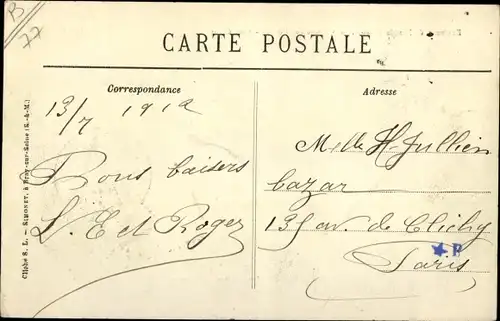 B
77
CARTE POSTALE
Correspondance
Adresse
13/7 1912
Bons baisers
L. E et Roger
Melle H. Jullien
bazar
135 av. de Clichy
Paris
★B
Cliché S. L. — Simonet, à Bray-sur-Seine (S.-&-M.)